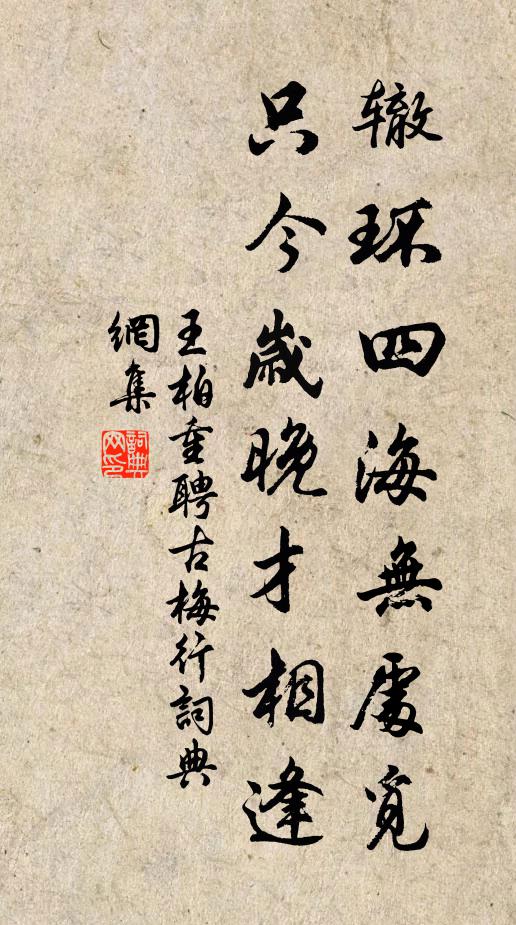 辙环四海無處覓
只今歲晚才相逢
王柏重聘古梅行詞典
網集
詞典網印